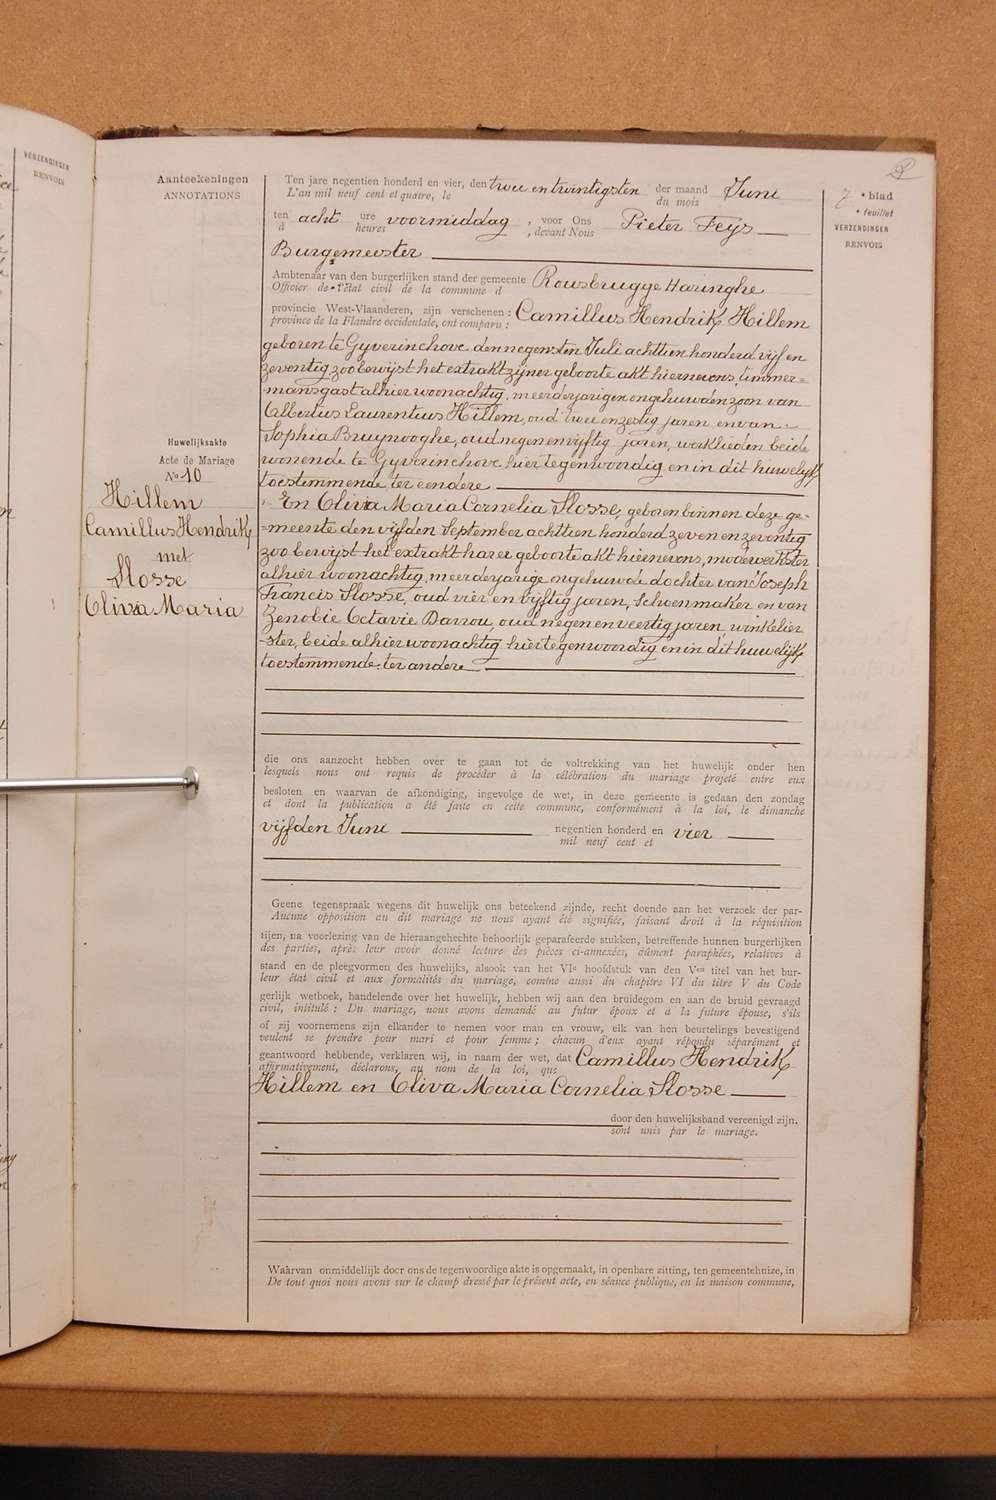 VERZENDINGEN
RENVOIS
Aanteekeningen
ANNOTATIONS
Huwelijksakte
Acte de Mariage
No 10
Hillem
Camillus Hendrik
met
Slosse
Oliva Maria
Ten jare negentien honderd en vier, den twee en twintigsten der maand Juni
L'an mil neuf cent et quatre, le du mois
ten acht ure voormiddag, voor Ons Pieter Feys
à heures , devant Nous
Burgemeester
Ambtenaar van den burgerlijken stand der gemeente Rousbrugge Haringhe
Officier de l'état civil de la commune d
provincie West-Vlaanderen, zijn verschenen : Camillus Hendrik Hillem
province de la Flandre occidentale, ont comparu :
geboren te Gyverinchove den negensten Juli achttien honderd vijf en
zeventig zoo bewijst het extrakt zijner geboorte akt hiernevens, timmer=
mansgast alhier woonachtig, meerderjarigen ongehuwden zoon van
Albertus Laurentius Hillem, oud twee en zestig jaren en van
Sophia Bruynooghe, oud negen en vijftig jaren, werklieden beide
wonende te Gyverinchove hier tegenwoordig en in dit huwelijk
toestemmende ter eendere
En Oliva Maria Cornelia Slosse, geboren binnen deze ge-
=meente den vijfden September achttien honderd zeven en zeventig
zoo bewijst het extrakt harer geboorte akt hiernevens, modewerkster
alhier woonachtig, meerderjarige ongehuwde dochter van Joseph
Francis Slosse, oud vier en vijftig jaren, schoenmaker en van
Zenobie Octavie Darrou, oud negen en veertig jaren winkelier
-ster, beide alhier woonachtig hier tegenwoordig en in dit huwelijk
toestemmende ter andere
die ons aanzocht hebben over te gaan tot de voltrekking van het huwelijk onder hen
lesquels nous ont requis de procéder à la célébration du mariage projeté entre eux
besloten en waarvan de afkondiging, ingevolge de wet, in deze gemeente is gedaan den zondag
et dont la publication a été faite en cette commune, conformément à la loi, le dimanche
vijfden Juni negentien honderd en vier
mil neuf cent et
Geene tegenspraak wegens dit huwelijk ons beteekend zijnde, recht doende aan het verzoek der par-
Aucune opposition au dit mariage ne nous ayant été signifiée, faisant droit à la réquisition
tijen, na voorlezing van de hieraangehechte behoorlijk geparafeerde stukken, betreffende hunnen burgerlijken
des parties, après leur avoir donné lecture des pièces ci-annexées, dûment paraphées, relatives à
stand en de pleegvormen des huwelijks, alsook van het VIe hoofdstuk van den Ven titel van het bur-
leur état civil et aux formalités du mariage, comme aussi du chapitre VI du titre V du Code
gerlijk wetboek, handelende over het huwelijk, hebben wij aan den bruidegom en aan de bruid gevraagd
civil, intitulé : Du mariage, nous avons demandé au futur époux et à la future épouse, s'ils
of zij voornemens zijn elkander te nemen voor man en vrouw, elk van hen beurtelings bevestigend
veulent se prendre pour mari et pour femme ; chacun d'eux ayant répondu séparément et
geantwoord hebbende, verklaren wij, in naam der wet, dat Camillus Hendrik
affirmativement, déclarons, au nom de la loi, que
Hillem en Oliva Maria Cornelia Slosse
door den huwelijksband vereenigd zijn.
sont unis par le mariage.
Waarvan onmiddellijk door ons de tegenwoordige akte is opgemaakt, in openbare zitting, ten gemeentehuize, in
De tout quoi nous avons sur le champ dressé par le présent acte, en séance publique, en la maison commune,
7e blad
e feuillet
VERZENDINGEN
RENVOIS